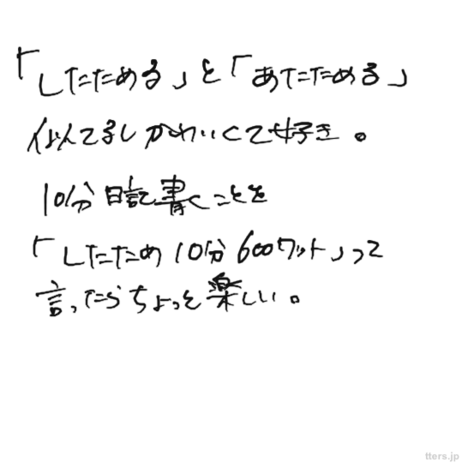 「したためる」と「あたためる」
似てるしかわいくて好き。
10分日記書くことを
「したため10分600ワット」って
言ったらちょっと楽しい。
tters.jp